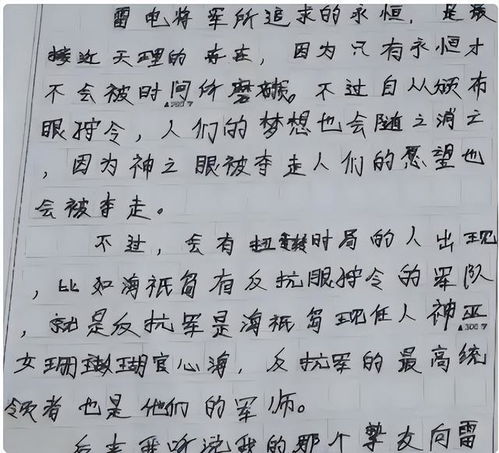 雷电将军所追求的永恒，是最
接近天理的存在，因为只有永恒才
不会被时间所磨损。不过自从颁布
眼狩令，人们的梦想也会随之消亡
，因为神之眼被夺走人们的愿望也
会被夺走。
不过，会有扭转时局的人出现
，比如海祇岛有反抗眼狩令的军队
，就是反抗军是海祇岛现任人神巫
女珊瑚宫心海，反抗军的最高统
领者也是他们的军师。
后来我听说我的那个挚友向雷